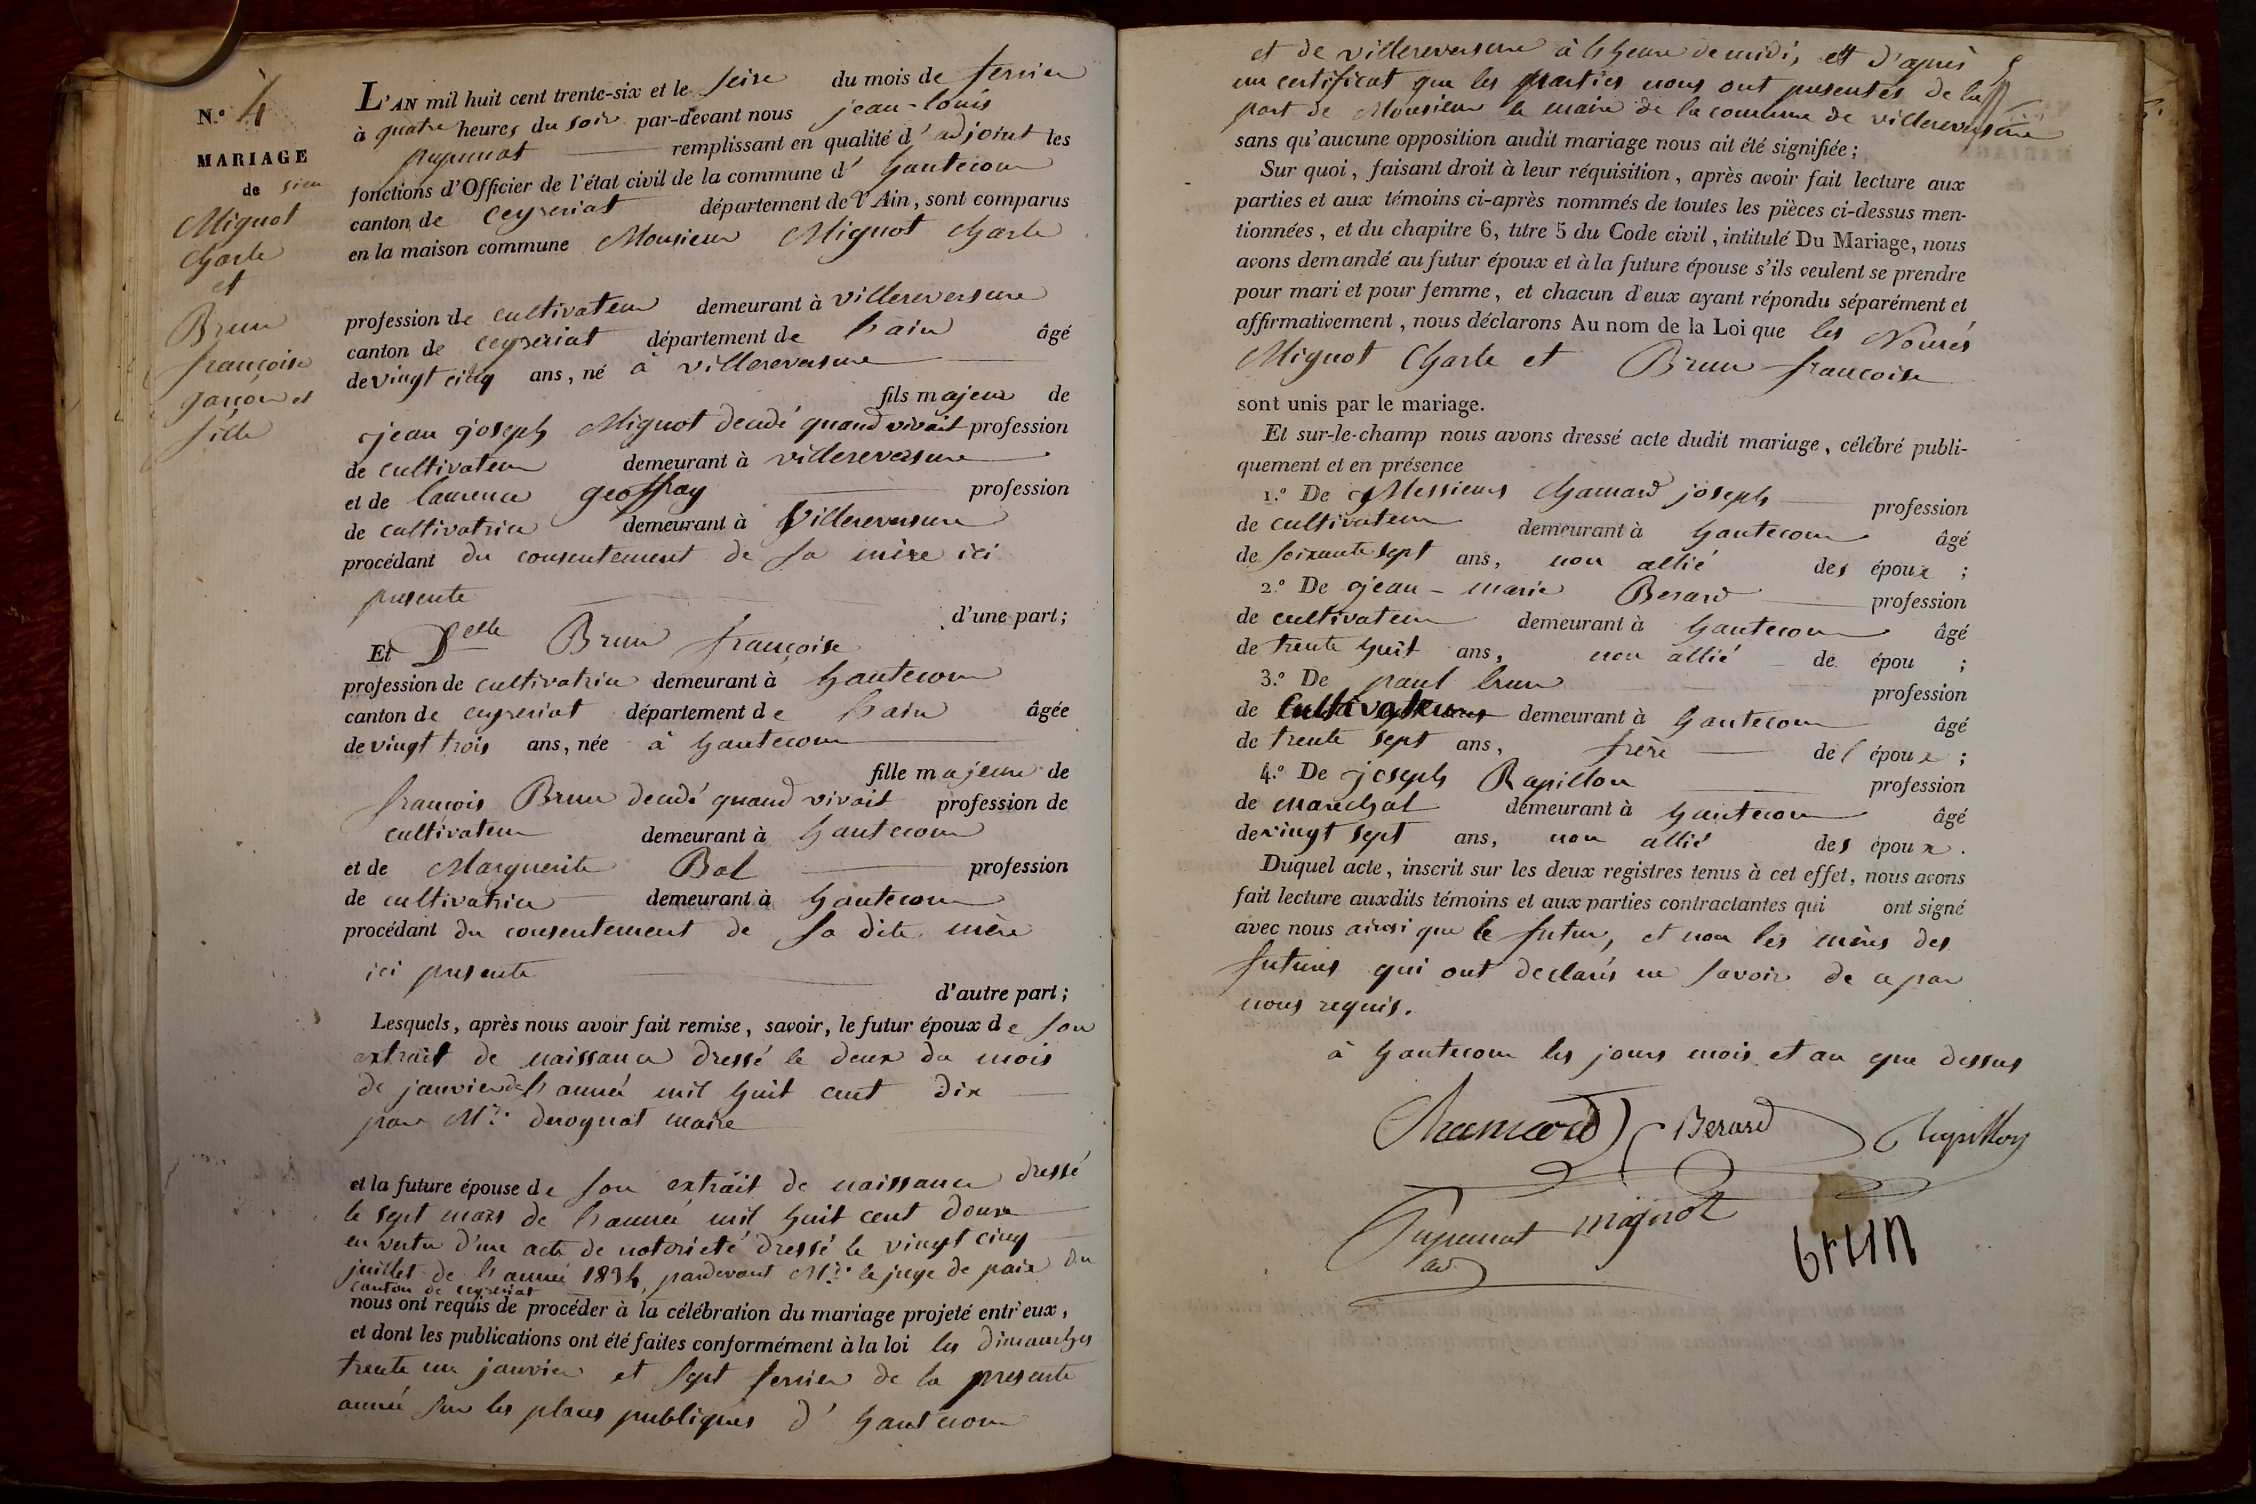 N.º 4
MARIAGE
de sieu
Mignot
Charle
et
Brun
françoise
garçon et
fille
L'AN mil huit cent trente-six et le seize du mois de fevrier
à quatre heures du soir par-devant nous jean-louis
papunat remplissant en qualité d'adjoint les
fonctions d'Officier de l'état civil de la commune d' hautecour
canton de ceyzeriat département de l'Ain, sont comparus
en la maison commune Monsieur Mignot Charle
profession de cultivateur demeurant à villereversure
canton de ceyzeriat département de l'ain âgé
de vingt cinq ans, né à villereversure
fils majeur de
jean joseph Mignot decedé quand vivait profession
de cultivateur demeurant à villereversure
et de laurence geoffray profession
de cultivatrice demeurant à Villereversure
procédant du consentement de sa mère ici
presente
d'une part;
Et Delle Brun françoise
profession de cultivatrice demeurant à hautecour
canton de ceyzeriat département de l'ain âgée
de vingt trois ans, née à hautecour
fille majeure de
françois Brun decedé quand vivait profession de
cultivateur demeurant à hautecour
et de Marguerite Bal profession
de cultivatrice demeurant à hautecour
procédant du consentement de sa dite mère
ici presente
d'autre part;
Lesquels, après nous avoir fait remise, savoir, le futur époux de son
extrait de naissance dressé le deux du mois
de janvier de l'année mil huit cent dix
par Mr. derognat maire
et la future épouse de son extrait de naissance dressé
le sept mars de l'année mil huit cent douze
en vertu d'un acte de notoriété dressé le vingt cinq
juillet de l'année 1834, pardevant Mr. le juge de paix du
canton de ceyzeriat
nous ont requis de procéder à la célébration du mariage projeté entr'eux,
et dont les publications ont été faites conformément à la loi les dimanches
trente un janvier et sept fevrier de la presente
année sur les places publiques d' hautecour
et de villereversure à l'heure de midi, et d'après
un certificat que les parties nous ont presentés de la
part de Monsieur le maire de la commune de villereversure
sans qu'aucune opposition audit mariage nous ait été signifiée;
Sur quoi, faisant droit à leur réquisition, après avoir fait lecture aux
parties et aux témoins ci-après nommés de toutes les pièces ci-dessus men-
tionnées, et du chapitre 6, titre 5 du Code civil, intitulé Du Mariage, nous
avons demandé au futur époux et à la future épouse s'ils veulent se prendre
pour mari et pour femme, et chacun d'eux ayant répondu séparément et
affirmativement, nous déclarons Au nom de la Loi que les Només
Mignot Charle et Brun françoise
sont unis par le mariage.
Et sur-le-champ nous avons dressé acte dudit mariage, célébré publi-
quement et en présence
1.º De Messieurs Chamard joseph profession
de cultivateur demeurant à hautecour âgé
de soixante sept ans, non allié des époux;
2.º De jean-marie Berard profession
de cultivateur demeurant à hautecour âgé
de trente huit ans, non allié de épou;
3.º De paul brun profession
de Cultivateur demeurant à hautecour âgé
de trente sept ans, frère de l'époux;
4.º De joseph Rapillon profession
de marechal demeurant à hautecour âgé
de vingt sept ans, non allié des époux.
Duquel acte, inscrit sur les deux registres tenus à cet effet, nous avons
fait lecture auxdits témoins et aux parties contractantes qui ont signé
avec nous ainsi que le futur, et non les mères des
futurs qui ont declarés ne savoir de ce par
nous requis.
à hautecour les jours mois et an que dessus
Chamard Berard Rapillon
Papunat mignot
adj
brun